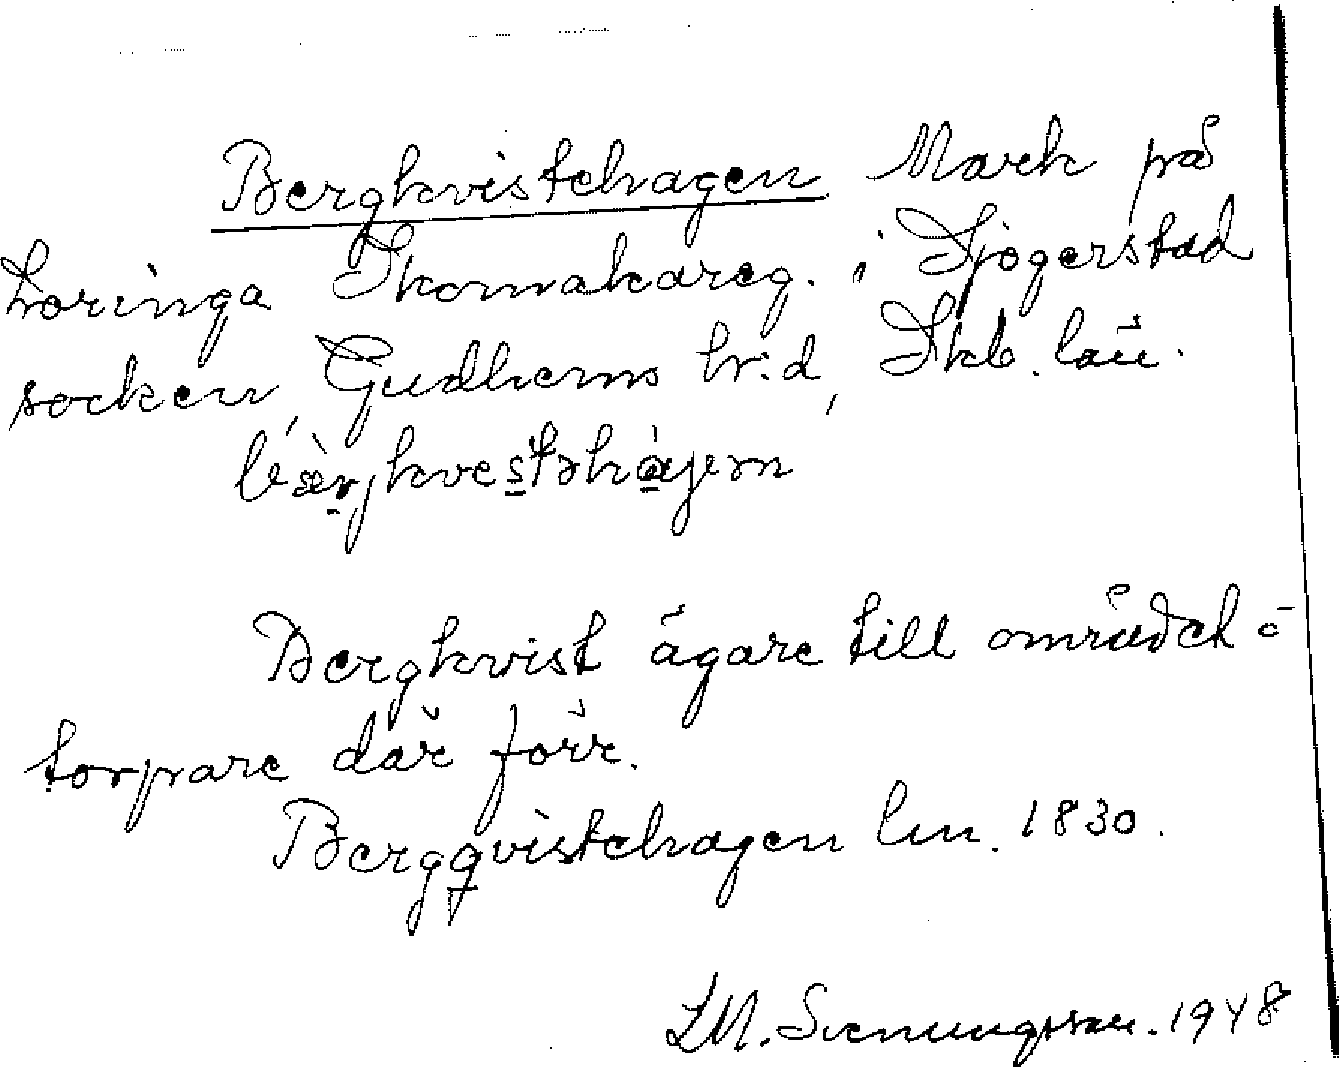 Bergkvistehagen Mark på
Loringa Skomakareg. i Sjogerstad
socken, Gudhems hr:d, Skb. län.
Bergkvist ägare till området o
torpare där förr.
Bergqvistehagen lm. 1830.
LM. Svenungsson. 1948